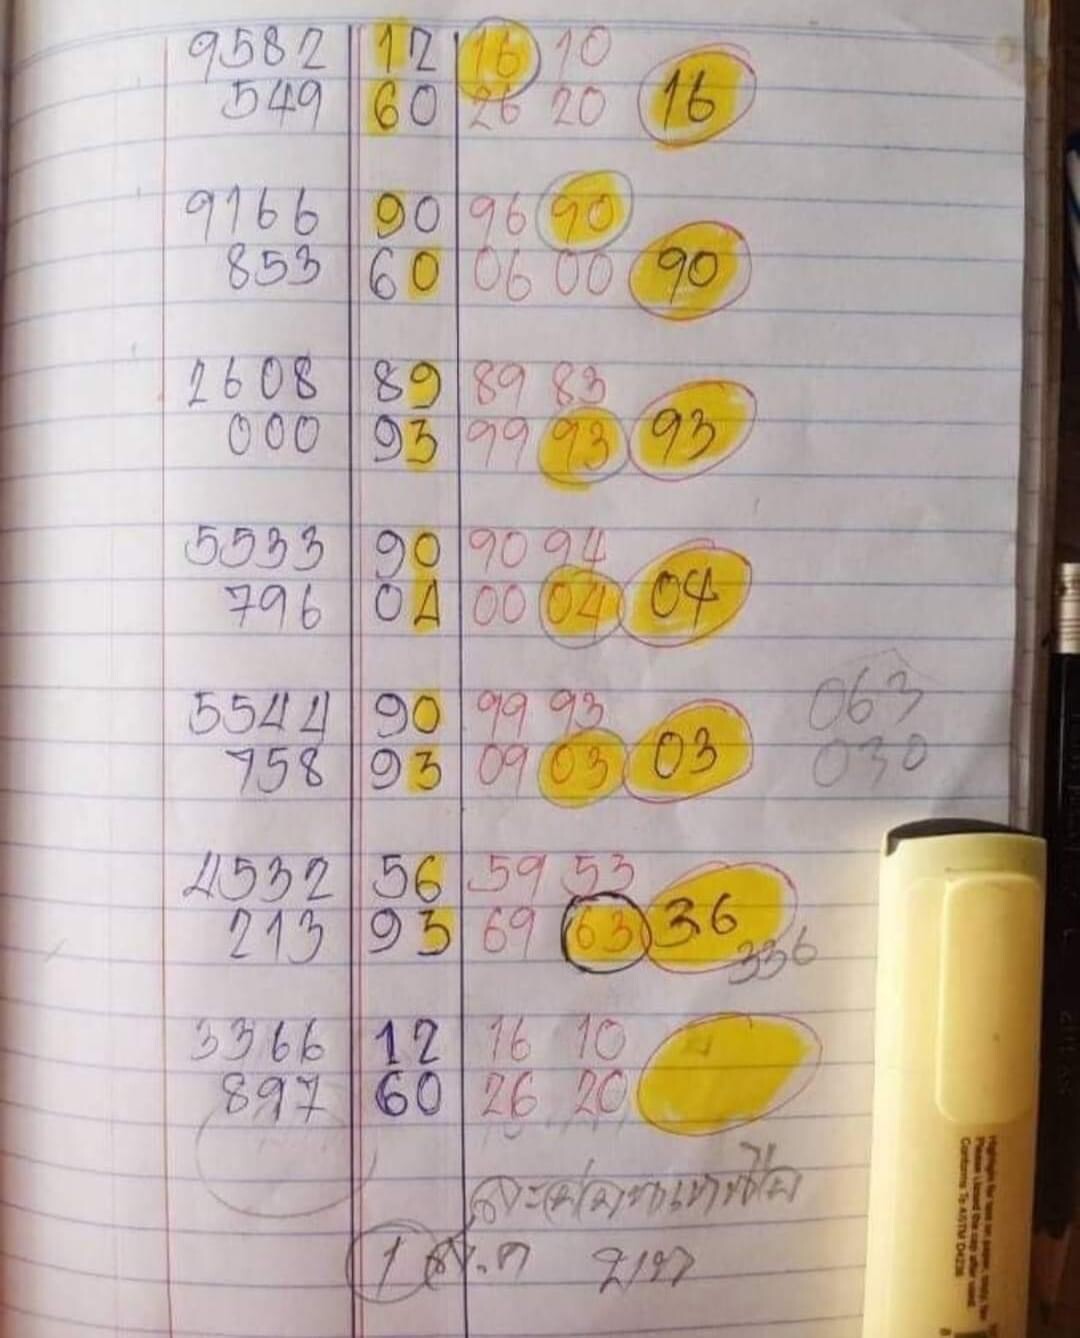 9582 12 16 10
549 60 26 20 16
9166 90 96 90
853 60 06 00 90
2608 89 89 83
000 93 99 93 93
5533 90 90 94
796 04 00 04 04
5544 90 99 93 063
758 93 09 03 03 030
4532 56 59 53
213 93 69 63 36
336
3366 12 16 10
897 60 26 20
1 ส.ค
Conforms To ASTM D4236